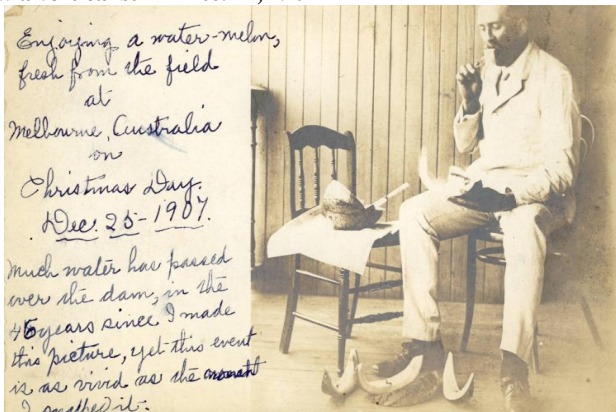 Enjoying a water-melon,
fresh from the field
at
Melbourne, Australia
on
Christmas Day.
Dec. 25-1907.
Much water has passed
over the dam, in the
45 years since I made
this picture, yet this event
is as vivid as the moment
I made it.